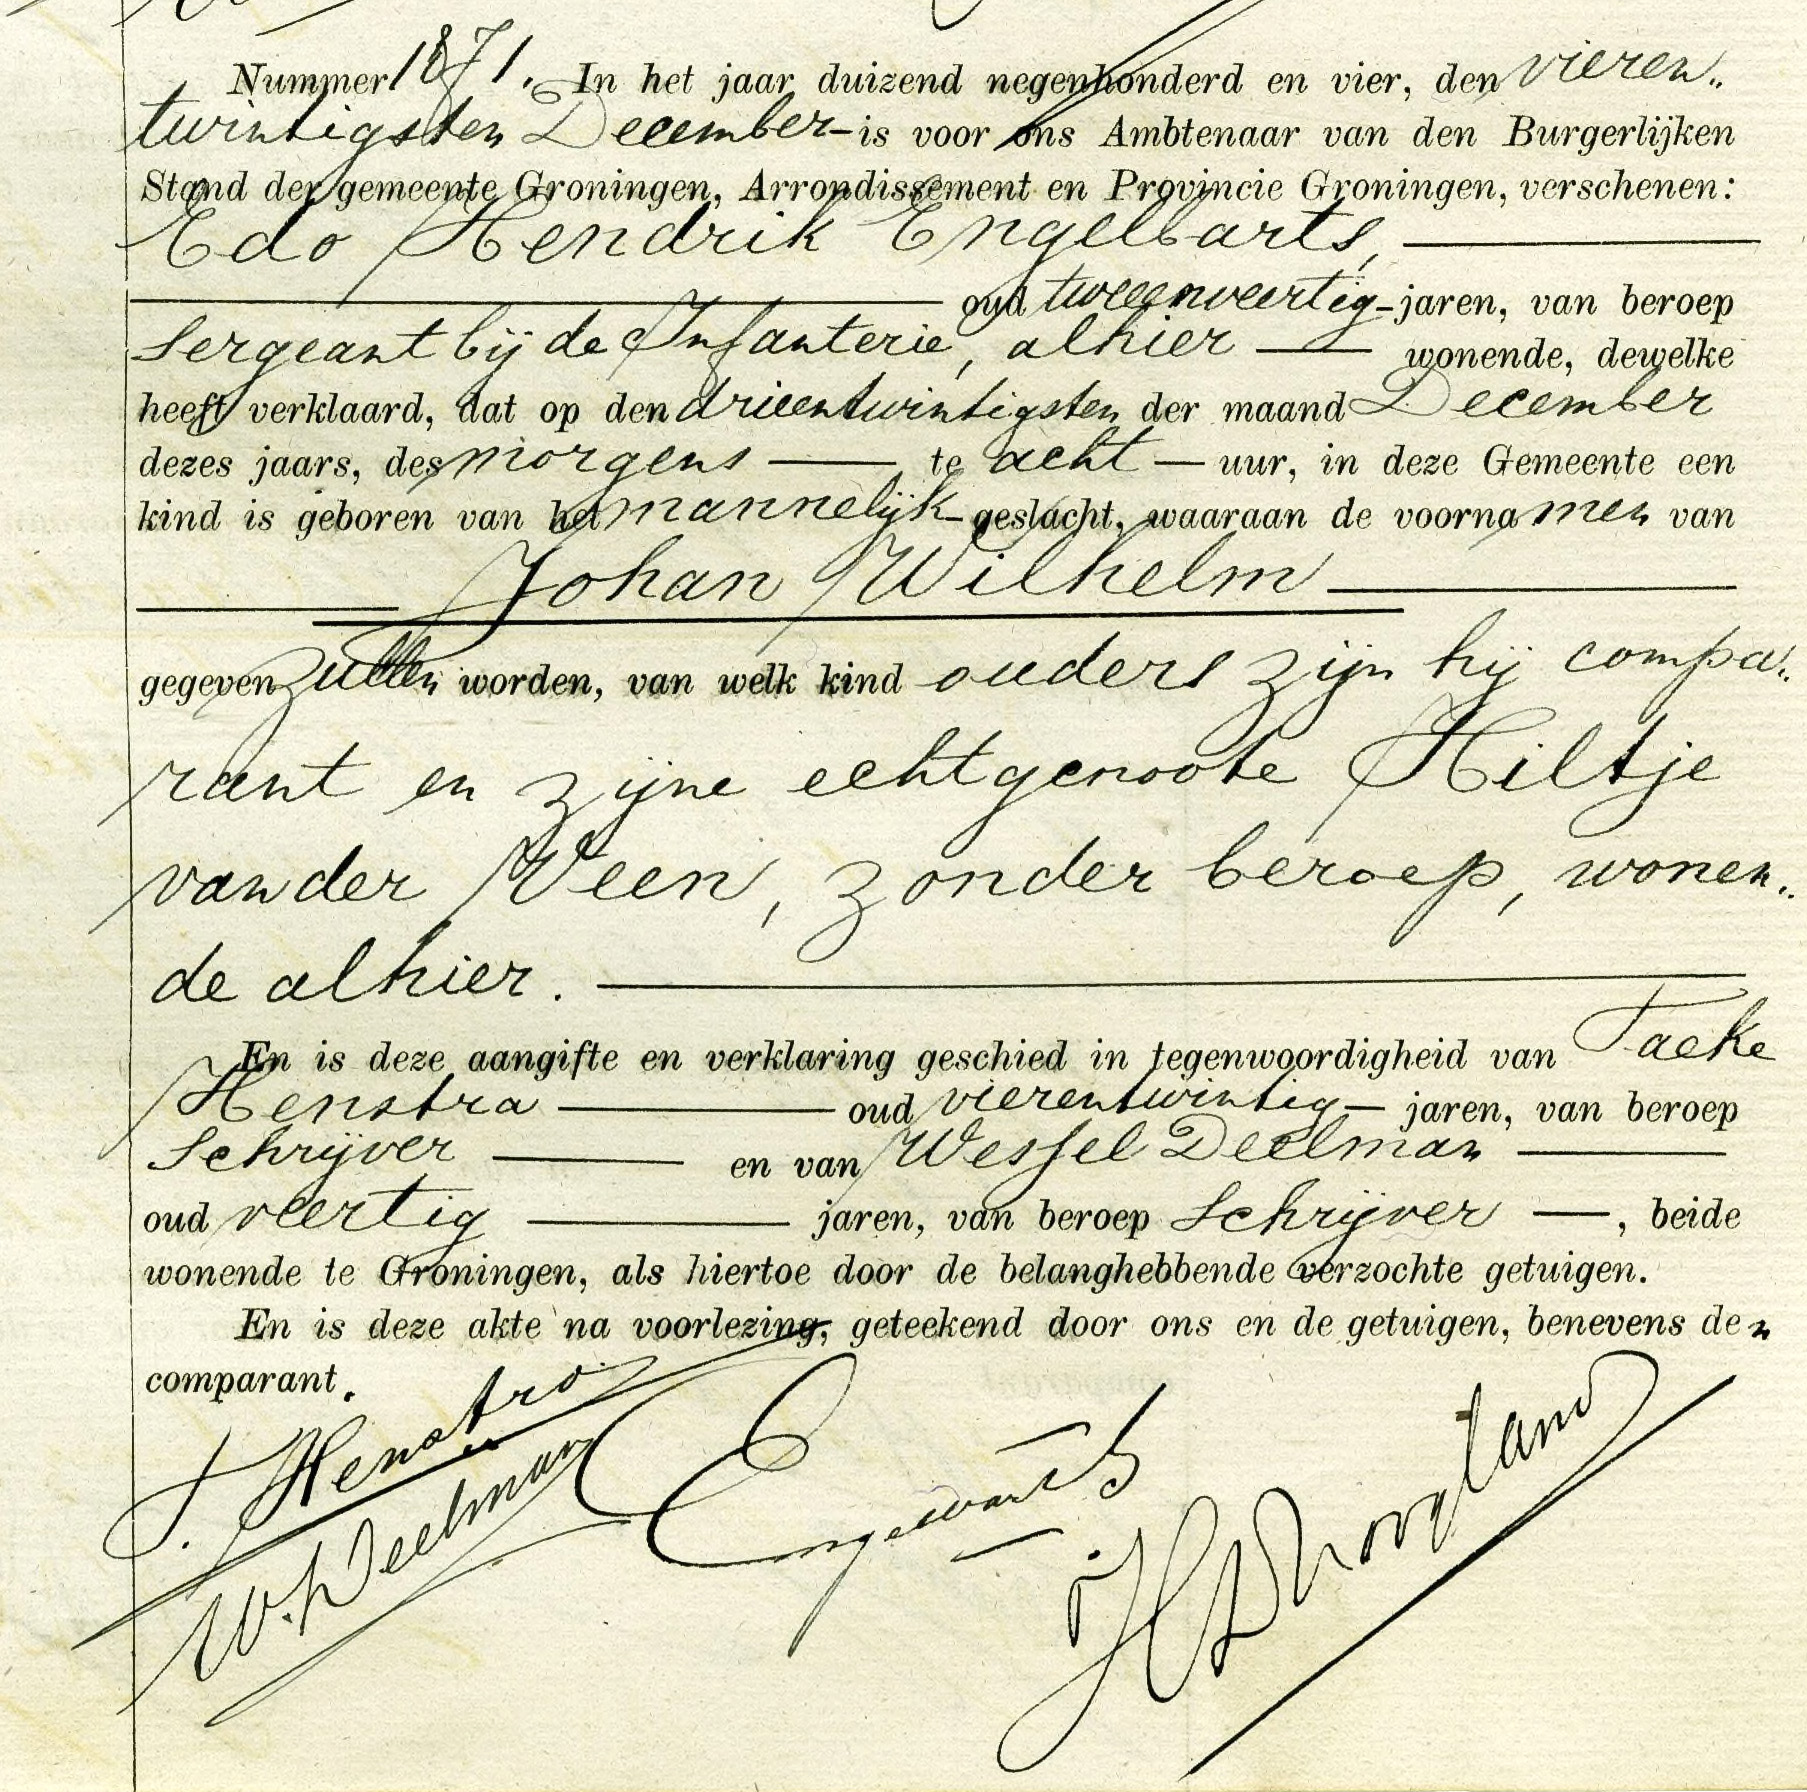 Nummer 1871. In het jaar duizend negenhonderd en vier, den vieren„
twintigsten December - is voor ons Ambtenaar van den Burgerlijken
Stand der gemeente Groningen, Arrondissement en Provincie Groningen, verschenen:
Edo Hendrik Engelbarts,
oud tweeenveertig - jaren, van beroep
Sergeant bij de Infanterie, alhier — wonende, dewelke
heeft verklaard, dat op den drieentwintigsten der maand December
dezes jaars, des morgens — te acht — uur, in deze Gemeente een
kind is geboren van het mannelijk geslacht, waaraan de voornamen van
Johan Wilhelm
gegeven zullen worden, van welk kind ouders zijn hij compa„
rant en zijne echtgenoote Hiltje
van der Veen, zonder beroep, wonen„
de alhier.
En is deze aangifte en verklaring geschied in tegenwoordigheid van Taeke
Henstra — oud vierentwintig — jaren, van beroep
Schrijver — en van Wessel Deelman —
oud veertig — jaren, van beroep Schrijver —, beide
wonende te Groningen, als hiertoe door de belanghebbende verzochte getuigen.
En is deze akte na voorlezing, geteekend door ons en de getuigen, benevens den
comparant.
T. Henstra
W. Deelman
Engelbarts